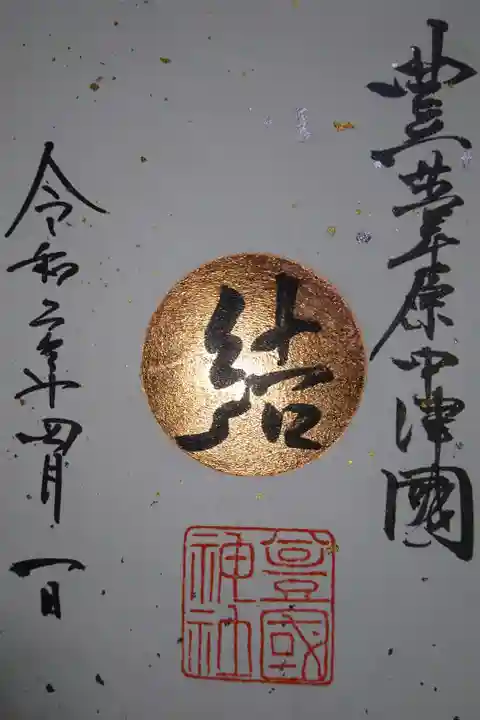 豊葦原中津國
結
豊國
神社
令和二年四月一日